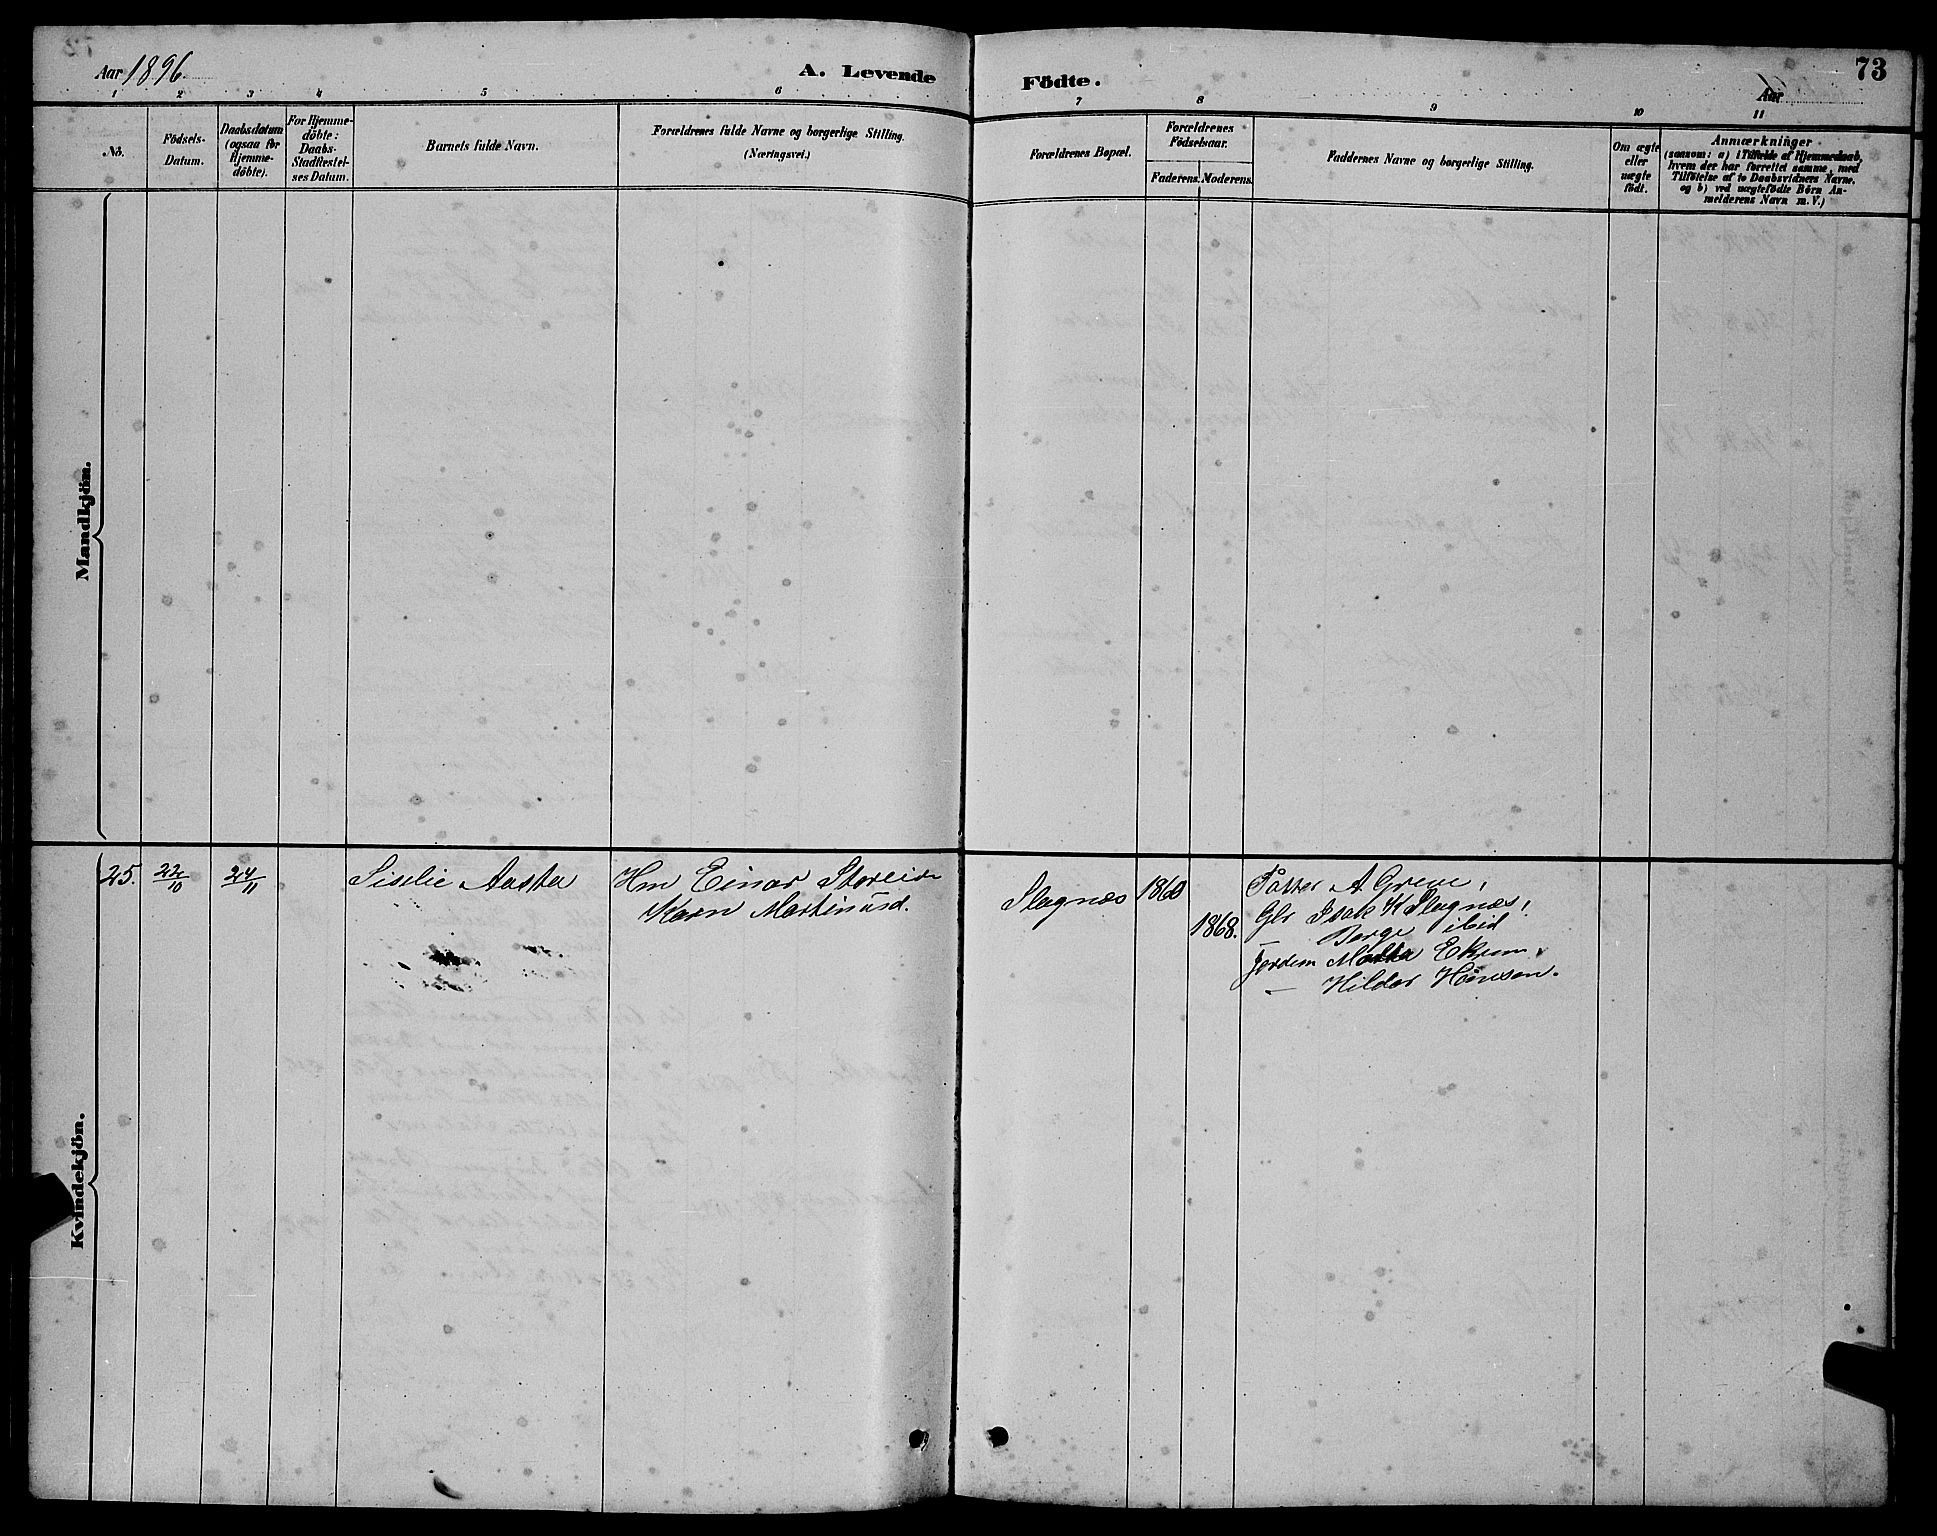 73
Aar 1896.
A. Levende Födte.
Aar
1 2 3 4 5 6 7 8 9 10 11
No.
Födsels-Datum.
Daabsdatum (ogsaa for Hjemme-döbte).
For Hjemme-döbte: Daabs-Stadfæstel-ses Datum.
Barnets fulde Navn.
Forældrenes fulde Navne og borgerlige Stilling. (Næringsvei.)
Forældrenes Bopæl.
Forældrenes Födselsaar.
Faderens. Moderens.
Faddernes Navne og borgerlige Stilling.
Om ægte eller uægte födt.
Anmærkninger
(saasom: a) i Tilfælde af Hjemmedaab,
hvem der har forrettet samme, med
Tilföielse af to Daabsvidners Navne,
og b) ved uægtefödte Börn An-
melderens Navn m. V.)
Mandkjön.
Kvindekjön.
25. 22/10 24/11 Siselie Aasta Hm Einar Storeide
Karn Martinusd.
Slagnæs 1860
1868.
A Greve,
Glr Isak K Slagnæs,
— Berge ibid
Jordem Ekrem,
— Hilder Hansen.